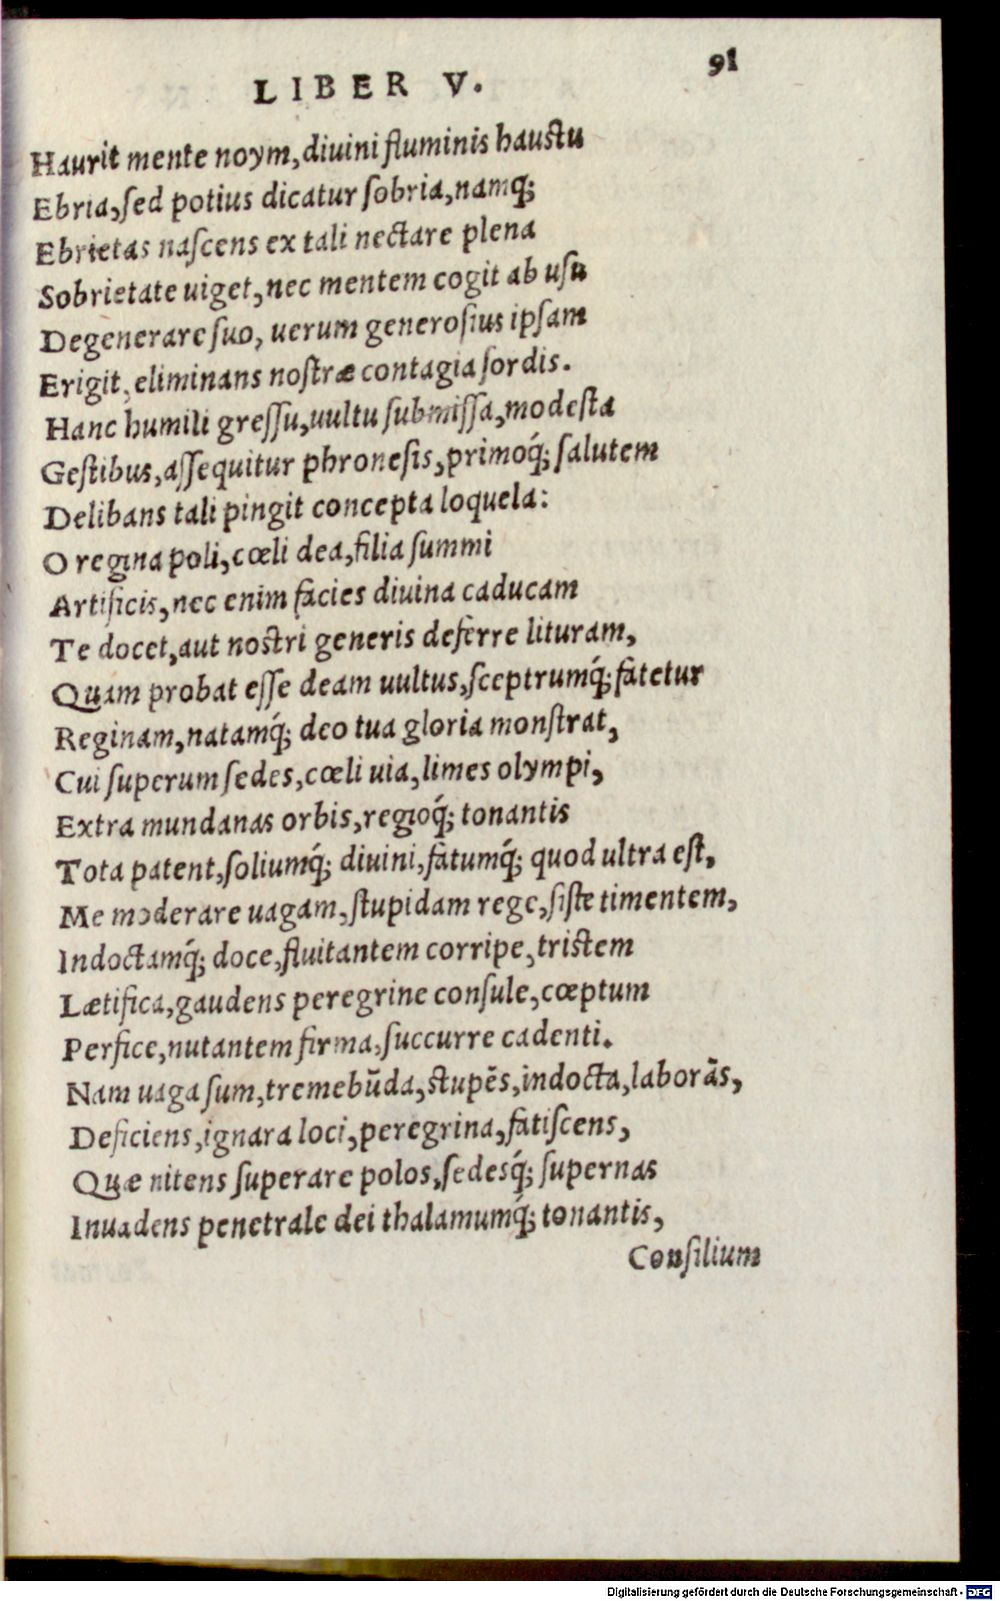 91
LIBER V.
Haurit mente noym, diuini fluminis haustu
Ebria, ſed potius dicatur ſobria, namq́;
Ebrietas naſcens ex tali nectare plena
Sobrietate uiget, nec mentem cogit ab uſu
Degenerare ſuo, uerum generoſius ipſam
Erigit, eliminans noſtræ contagia ſordis.
Hanc humili greſſu, uultu ſubmiſſa, modeſta
Geſtibus, aſſequitur phroneſis, primoq́; ſalutem
Delibans tali pingit concepta loquela:
O regina poli, cœli dea, filia ſummi
Artificis, nec enim facies diuina caducam
Te docet, aut nostri generis deferre lituram,
Quam probat eſſe deam uultus, ſceptrumq́; fatetur
Reginam, natamq́; deo tua gloria monſtrat,
Cui ſuperum ſedes, cœli uia, limes olympi,
Extra mundanas orbis, regioq́; tonantis
Tota patent, ſoliumq́; diuini, fatumq́; quod ultra eſt,
Me moderare uagam, ſtupidam rege, ſiſte timentem,
Indoctamq́; doce, fluitantem corripe, tristem
Lætifica, gaudens peregrine conſule, cœptum
Perfice, nutantem firma, ſuccurre cadenti.
Nam uaga ſum, tremebūda, stupēs, indocta, laborās,
Deficiens, ignara loci, peregrina, fatiſcens,
Quæ nitens ſuperare polos, ſedesq́; ſupernas
Inuadens penetrale dei thalamumq́; tonantis,
Conſilium
Digitalisierung gefördert durch die Deutsche Forschungsgemeinschaft - DFG